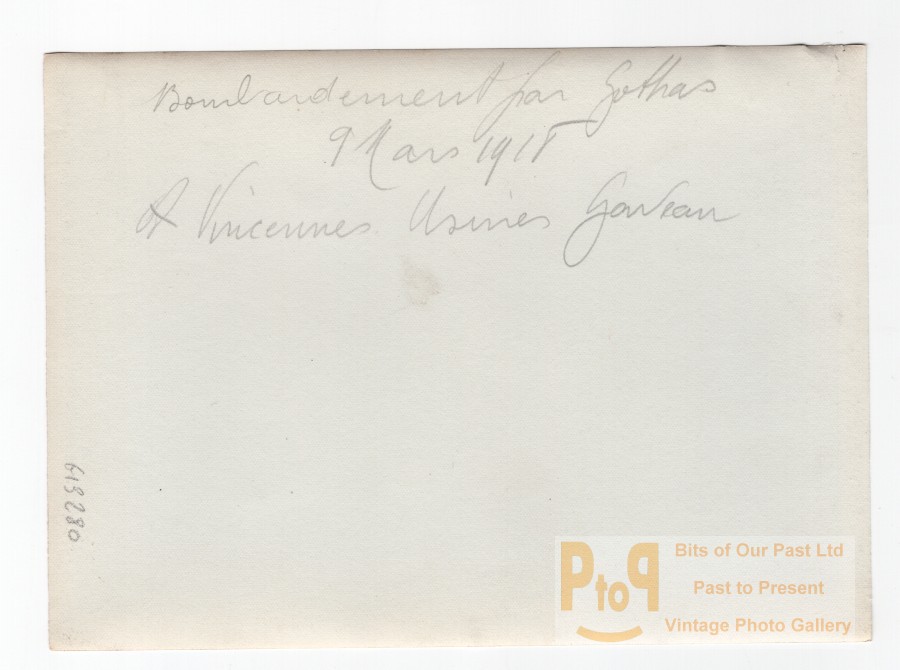 Bombardement par Gothas
9 Mars 1918
A Vincennes Usines Gaveau
613280
PtoP
Bits of Our Past Ltd
Past to Present
Vintage Photo Gallery